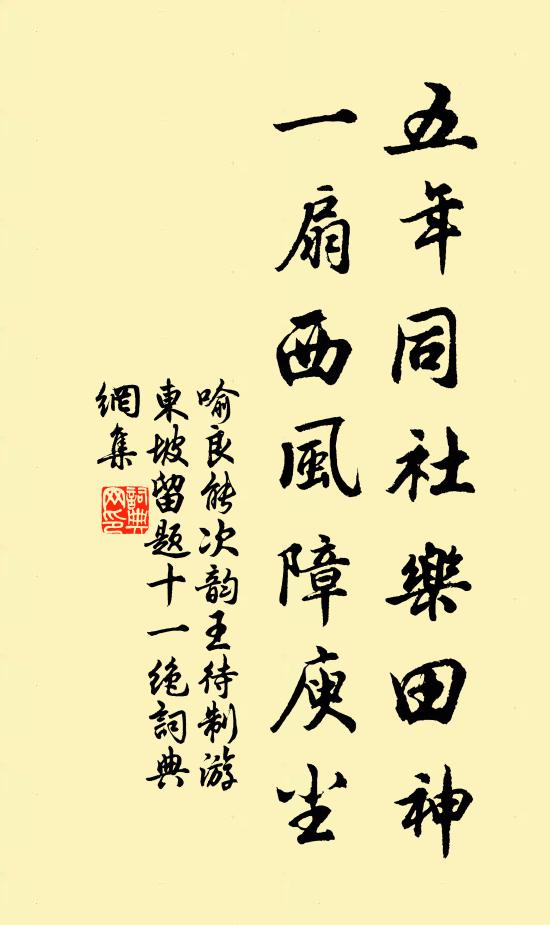 五年同社樂田神
一扇西風障庾尘
喻良能次韵王待制游
東坡留題十一绝詞典
網集
詞典
网印